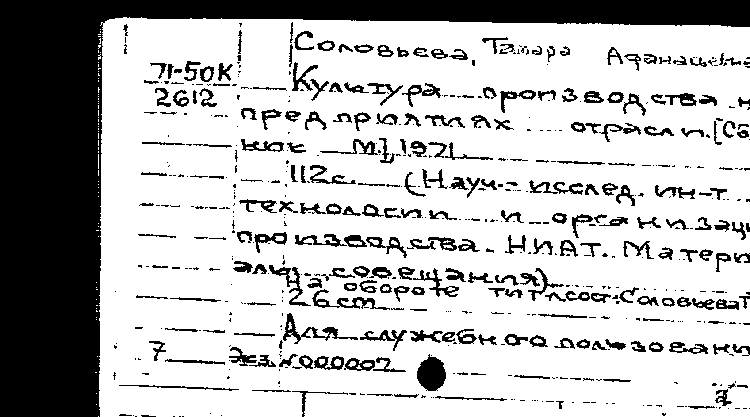 Соловьева, Тамара Афанасьевна
71-50К Культура производства н
2612 предприятиях отрасли. [Сб
ник М], 1971.
112с. (Науч.- исслед. ин-т
технологии и организаци
производства. НИАТ. Матери
алы совещания).
На обороте тит.л. сост.: Соловьева Т
26 cm
Для служебного пользовани
7 Экз. №000007